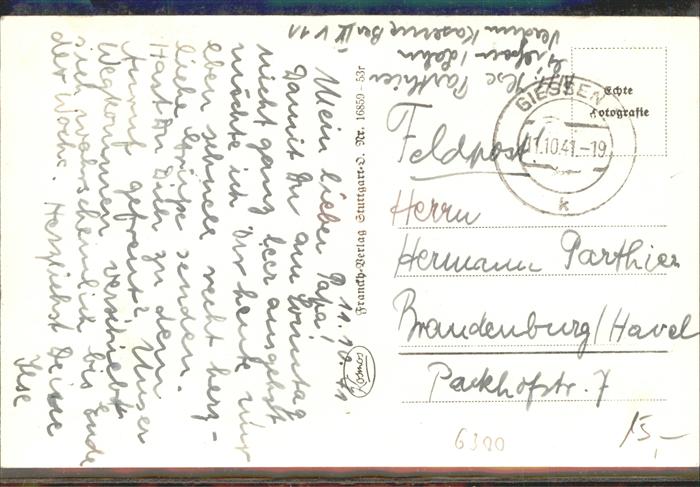 11.10.41
Mein lieber Papa!
Damit Du am Sonntag
nicht ganz leer ausgehst
möchte ich Dir heute nur
eben schnell recht herz-
liebe Grüße senden.
Hast Du Dich zu dem
Anruf gefreut? Unser
Wegkommen verschiebt
sich wahrscheinlich bis Ende
der Woche. Herzlichst Deine
Ilse
Franckh-Verlag Stuttgart-O. Nr. 16859-53r
Kosmos
Ilse Parthier
Verdun Kaserne
Echte
Fotografie
GIESSEN
11.10.41.-19
k
Feldpost!
Herrn
Hermann Parthier
Brandenburg/Havel
Packhofstr. 7
6300
15,-